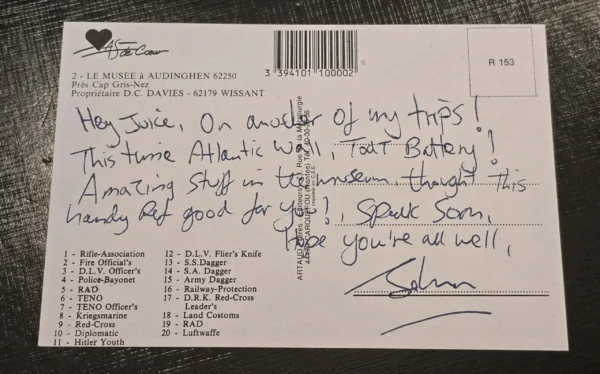 As de Cœur
3 394101 100002
R 153
2 - LE MUSEE à AUDINGHEN 62250
Près Cap Gris-Nez
Propriétaire D.C. DAVIES - 62179 WISSANT
Hey Juice, On another of my trips!
This time Atlantic Wall, Todt Battery!
Amazing stuff in the museum, thought this
handy Ref good for you!, Speak Soon,
Hope you're all well,
1 - Rifle-Association
2 - Fire Official's
3 - D.L.V. Officer's
4 - Police-Bayonet
5 - RAD
6 - TENO
7 - TENO Officer's
8 - Kriegsmarine
9 - Red-Cross
10 - Diplomatic
11 - Hitler Youth
12 - D.L.V. Flier's Knife
13 - S.S.Dagger
14 - S.A. Dagger
15 - Army Dagger
16 - Railway-Protection
17 - D.R.K. Red-Cross
Leader's
18 - Land Customs
19 - RAD
20 - Luftwaffe